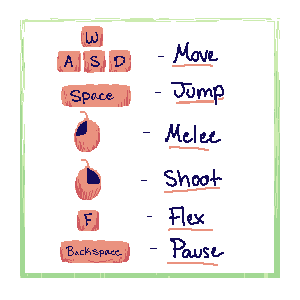 W
A S D - Move
Space - Jump
- Melee
- Shoot
F - Flex
Backspace - Pause